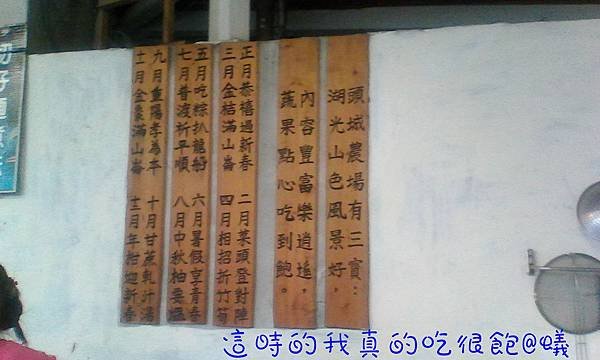 頭城農場有三寶：
湖光山色風景好，
內容豐富樂逍遙，
蔬果點心吃到飽。
正月恭禧過新春 二月菜頭登對陣
三月金桔滿山崙 四月相招折竹筍
五月吃粽扒龍船 六月暑假享青春
七月普渡祈平順 八月中秋柚
九月重陽孝為本 十月甘蔗軋汁湯
十一月金棗滿山崙 十二月年柑迎新春
這時的我真的吃很飽@蟻